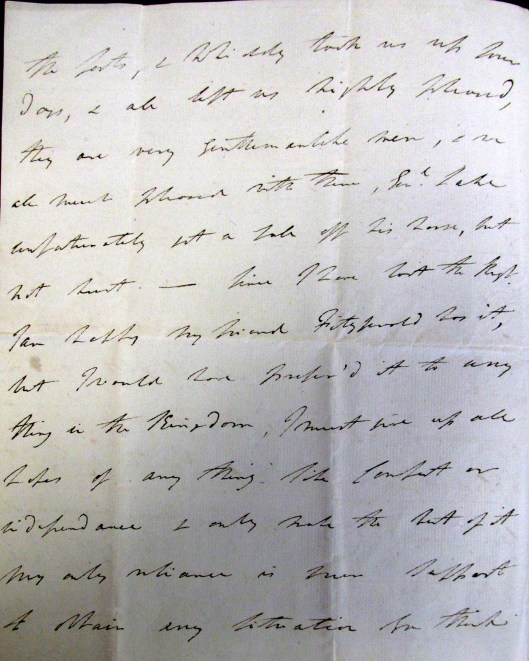 the forts, & Whiddy took us up four
Days, & all left us highly pleased,
they are very Gentlemanlike men, & we
all much pleased with them, Gen.l Lake
unfortunately got a fall off his horse, but
not hurt. — Since I have lost the Regt.
I am happy my friend Fitzgerald has it,
but I would have prefer'd it to any
thing in the Kingdom, I must give up all
hopes of any thing like Comfort or
independance & only make the best of it
my only reliance is your support
to obtain any situation you think